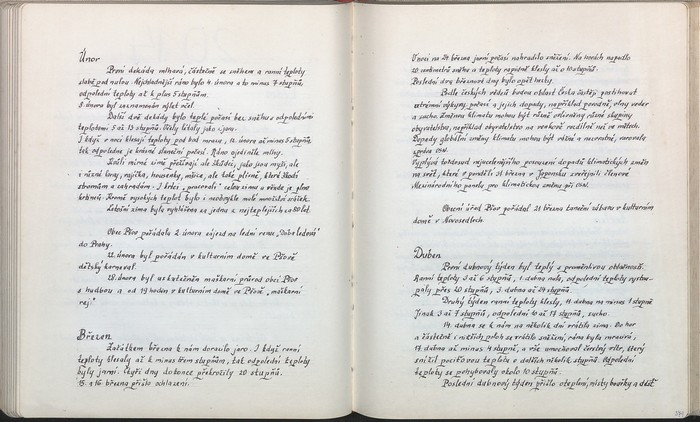 Únor
První dekáda mlhavá, částečně se sněhem a ranní teploty
slabě pod nulou. Nejchladnější ráno bylo 4. února a to minus 7 stupňů,
odpolední teploty až k plus 5 stupňům.
8. února byl zaznamenán výlet včel.
Další dvě dekády bylo teplé počasí bez sněhu s odpoledními
teplotami 5 až 13 stupňů. Včely létaly jako v jaru.
I když v noci klesají teploty pod bod mrazu, 12. února až minus 5 stupňů,
tak odpoledne je krásné sluneční počasí. Ráno ojediněle mlhy.
Kvůli mírné zimě přežívají ale škůdci, jako jsou myši, ale
i různé larvy, vajíčka, housenky, mšice, ale také plísně, které škodí
stromům a zahradám. I brčci „pracovali" celou zimu a všude je plno
krtinců. Kromě vysokých teplot bylo i neobvykle malé množství srážek.
Letošní zima byla vyhlášena za jednu z nejteplejších za 80 let.
Obec Pšov pořádala 2. února zájezd na lední revue „Doba ledová"
do Prahy.
22. února byl pořádán v kulturním domě ve Pšově
dětský karneval.
28. února byl uskutečněn maškarní průvod obcí Pšov
s hudbou a od 19 hodin v kulturním domě ve Pšově „maškarní
rej."
Březen
Začátkem března k nám dorazilo jaro. I když ranní
teploty klesaly až k minus třem stupňům, tak odpolední teploty
byly jarní. Čtyři dny dokonce překročily 20 stupňů.
15. a 16. března přišlo ochlazení.
V noci na 24. března jarní počasí nahradilo sněžení. Na horách napadlo
20 centimetrů sněhu a teploty rapidně klesly až o 10 stupňů.
Poslední dny březnové dny bylo opět hezky.
Podle českých vědců budou oblast Česka čistěji postihovat
extrémní výkyvy počasí a jejich dopady, například povodně, vlny veder
a sucho. Změnou klimatu mohou být různě ohroženy různé skupiny
obyvatelstva, například obyvatelstvo na venkově rozdílně než ve městech.
Dopady globální změny klimatu mohou být vážné a nevratné, varovala
zpráva OSN.
Vyplývá to dosud nejucelenějšího posouzení dopadů klimatických změn
na svět, které v pondělí 31. března v Japonsku zveřejnili členové
Mezinárodního panelu pro klimatickou změnu při OSN.
Obecní úřad Pšov pořádal 21. března taneční zábavu v kulturním
domě v Novosedlech.
Duben
První dubnový týden byl teplý s proměnlivou oblačností.
Ranní teploty 3 až 6 stupňů, 1. dubna nula, odpolední teploty vystou-
paly přes 20 stupňů, 3. dubna až 24 stupňů.
Druhý týden ranní teploty klesly, 11. dubna na minus 1 stupně
Jinak 3 až 7 stupňů, odpolední 10 až 17 stupňů, sucho.
14. dubna se k nám na několik dní vrátila zima. Do hor
a částečně i nižších poloh se vrátilo sněžení, ráno byla mrazivá,
17. dubna až minus 4 stupně, a vše umocňoval čerstvý vítr, který
snížil pocitovou teplotu o dalších několik stupňů. Odpolední
teploty se pohybovaly okolo 10 stupňů.
Poslední dubnový týden přišlo oteplení, místy bouřky a déšť